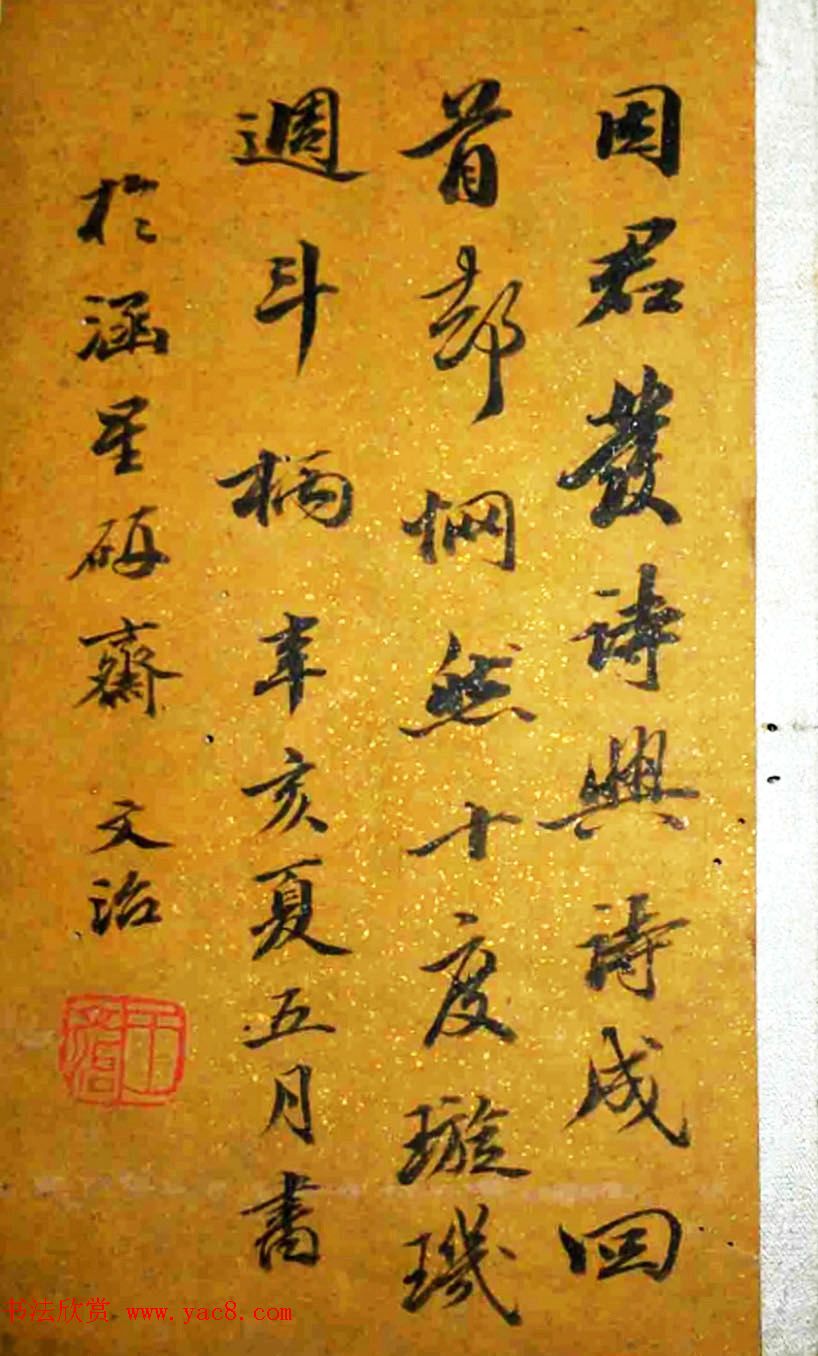 因君發詩興詩成回
首却惘然十度璇璣
週斗柄辛亥夏五月書
於涵星研齋 文治
王文治
书法欣赏 www.yac8.com